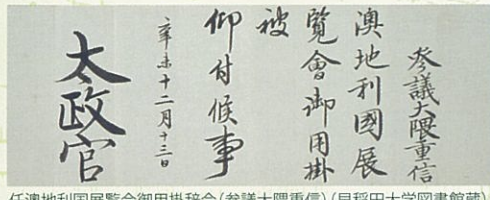 参議大隈重信
澳地利國展
覧會御用掛
被
仰付候事
辛未十二月十三日
太政官
任澳地利国展覧会御用掛辞令（参議大隈重信）（早稲田大学図書館蔵）